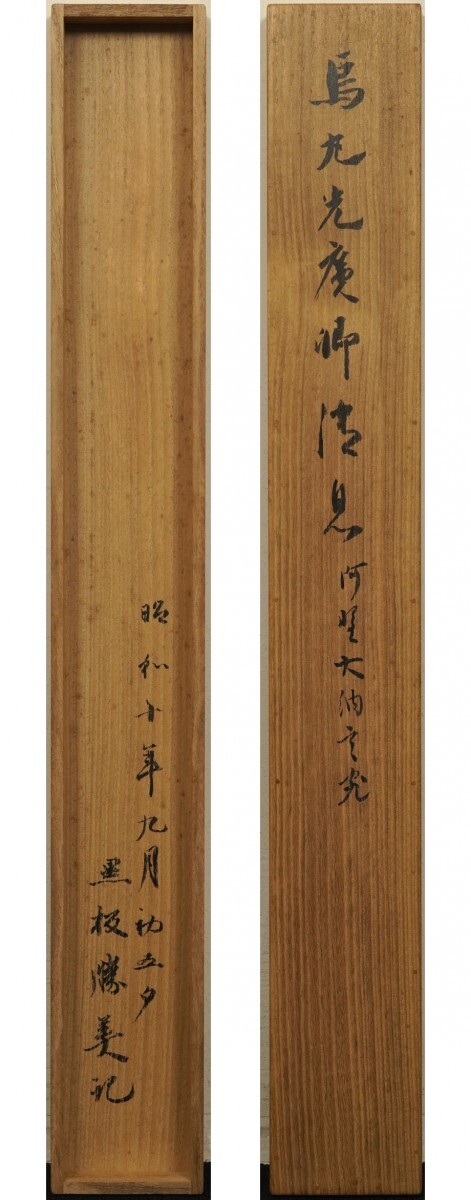 烏丸光廣卿消息 阿野大納言宛
昭和十年九月初五夕
黒板勝美記